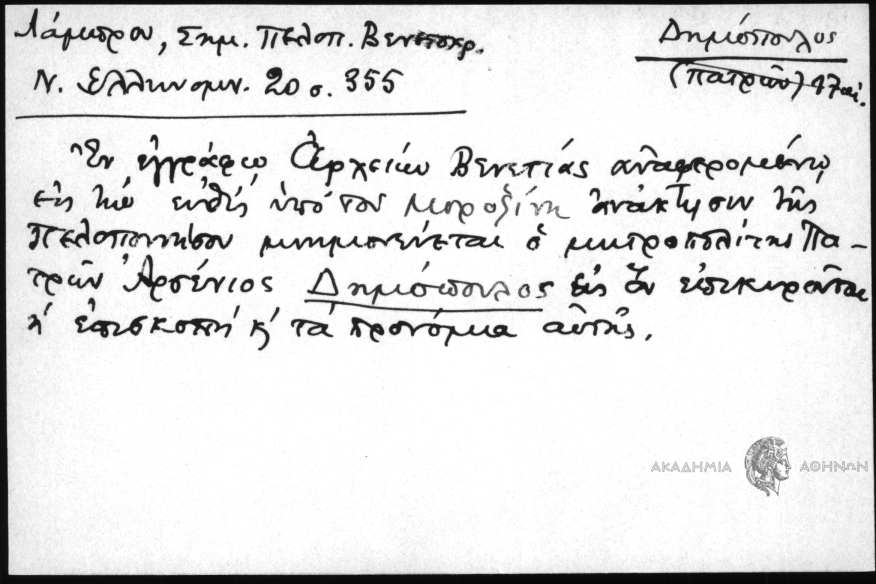 Λάμπρου, Σημ. Πελοπ. Βενετοκρ.
Ν. Ελληνομν. 20 σ. 355
Δημόπουλος
(Πατρῶν) 17 αἰ.
Ἐν ἐγγράφῳ Ἀρχείων Βενετίας ἀναφερομένῳ
εἰς τὴν ὑπό τοῦ Μοροζίνη ἀνάκτησιν τῆς
Πελοποννήσου μνημονεύεται ὁ μητροπολίτης Πα-
τρῶν Ἀρσένιος Δημόπουλος εἰς ὃν ἐπικυροῦται
ἡ ἐπισκοπή κ' τά προνόμια αὐτῆς.
ΑΚΑΔΗΜΙΑ ΑΘΗΝΩΝ